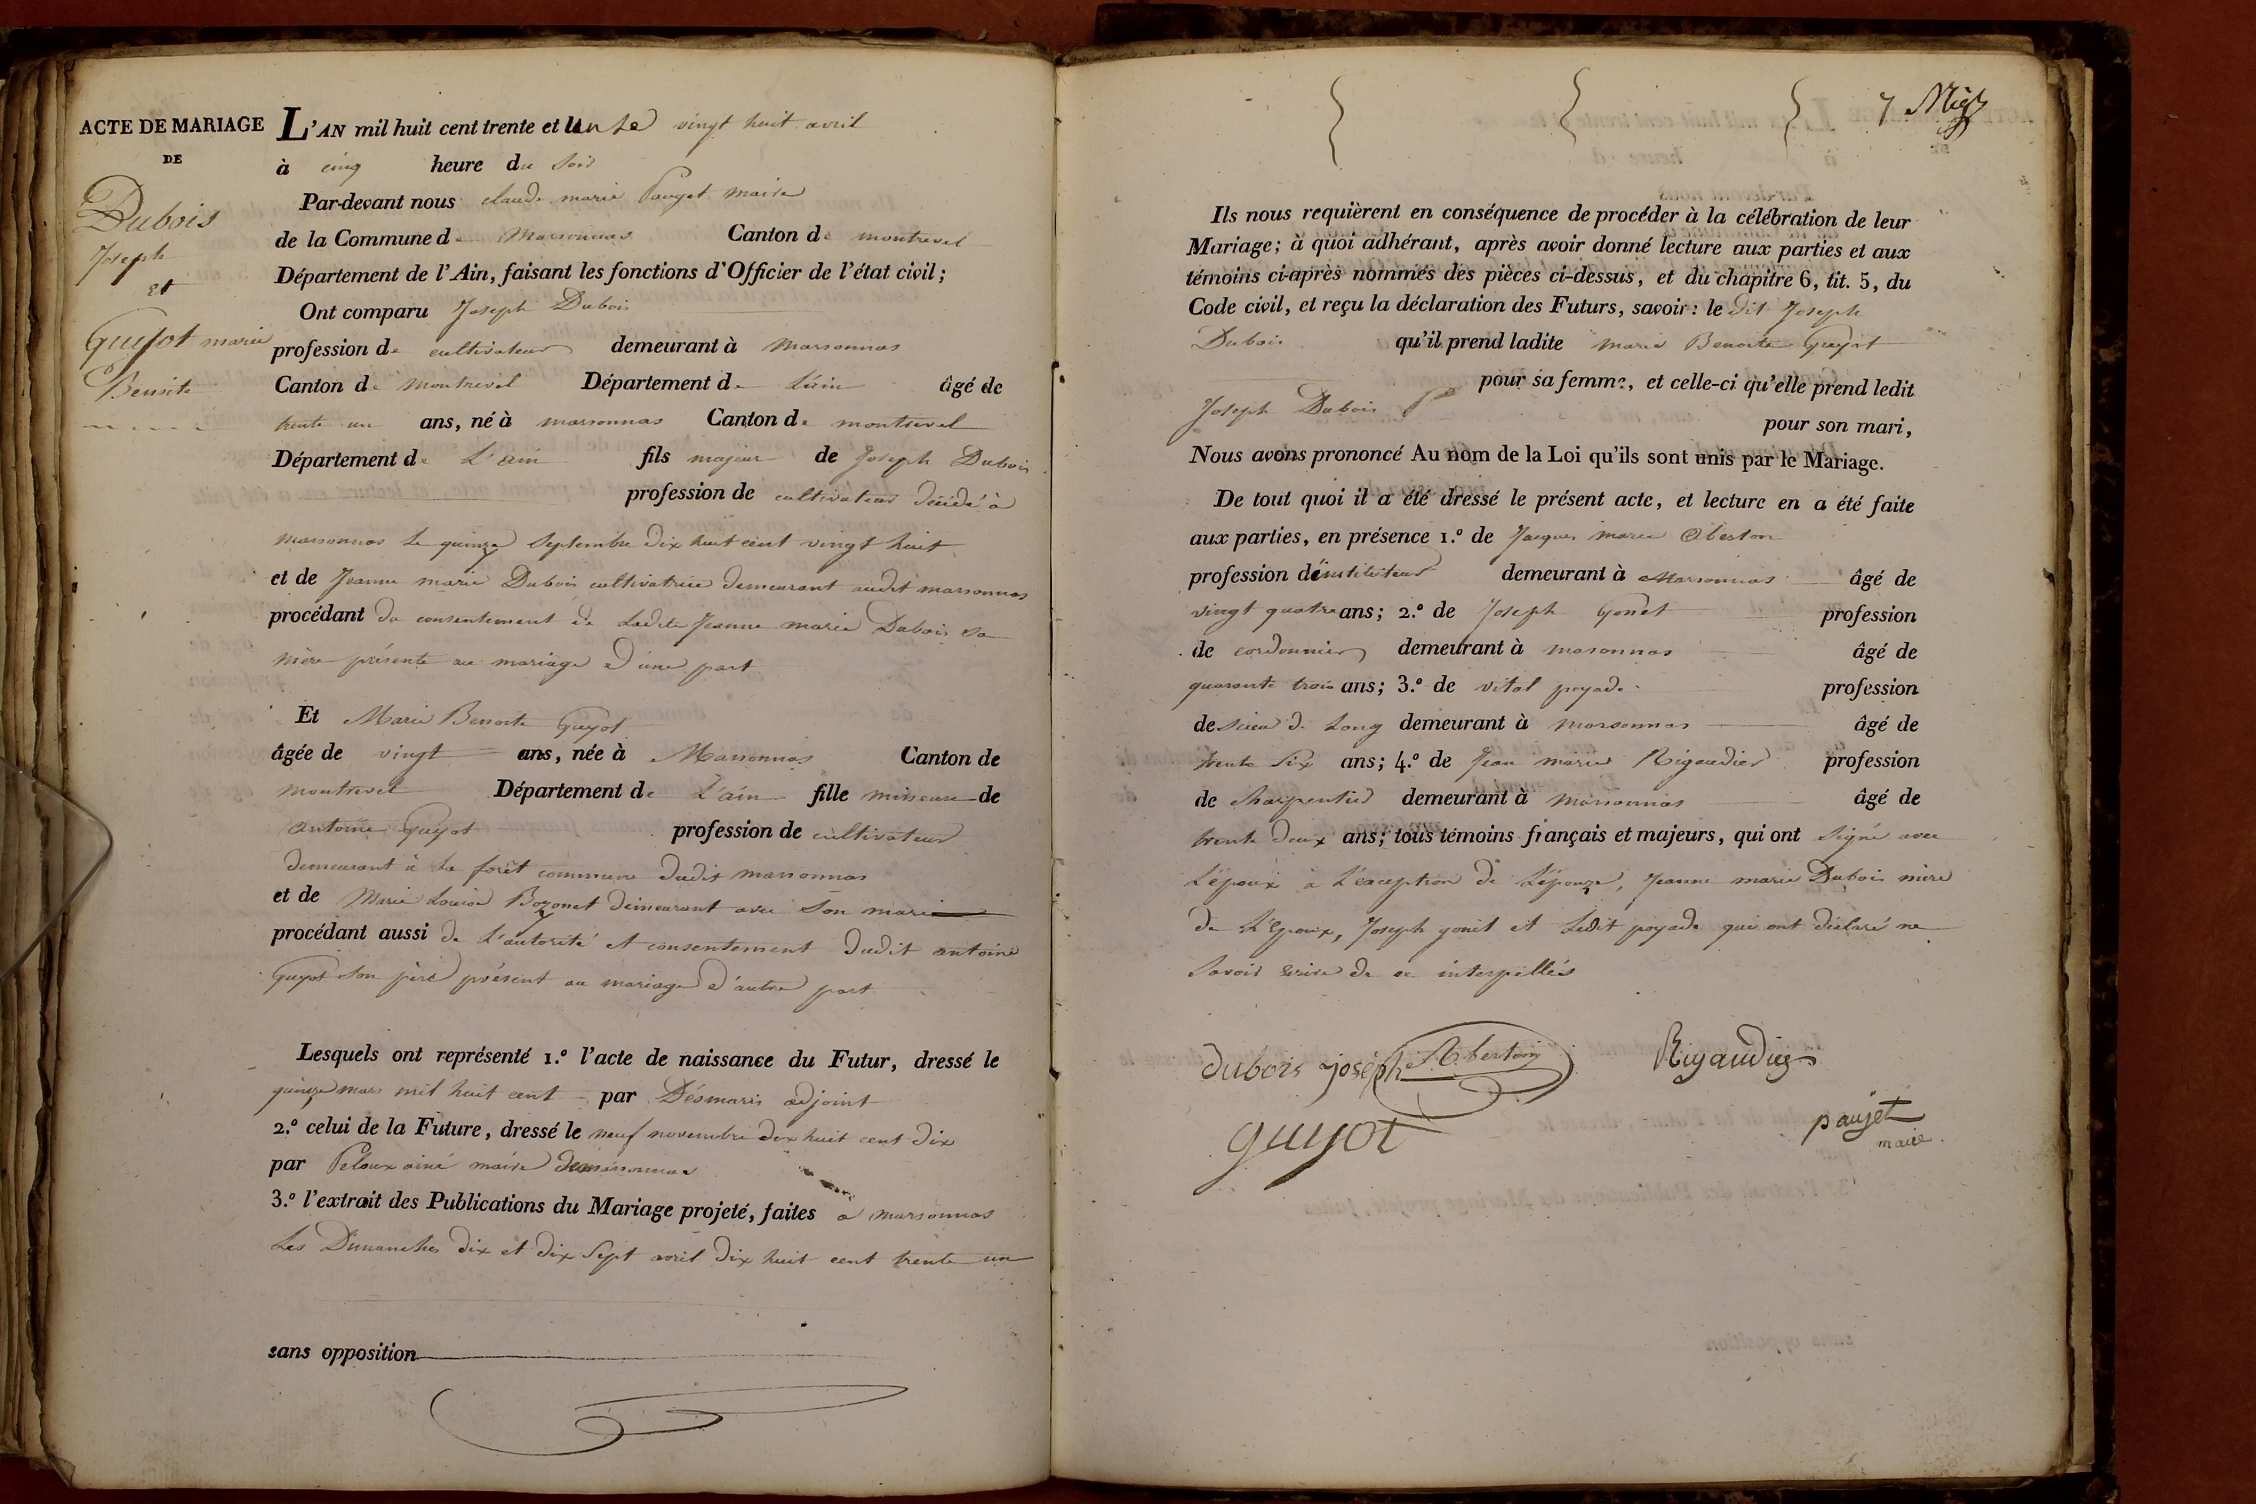 ACTE DE MARIAGE
DE
Dubois
Joseph
et
Guyot marie
Benoite
L'AN mil huit cent trente et un le vingt huit avril
à cinq heure du soir
Par-devant nous claude marie Pauget maire
de la Commune de Marsonnas Canton de montrevel
Département de l'Ain, faisant les fonctions d'Officier de l'état civil;
Ont comparu Joseph Dubois
profession de cultivateur demeurant à marsonnas
Canton de montrevel Département de L'ain âgé de
trente un ans, né à marsonnas Canton de montrevel
Département de L'ain fils majeur de Joseph Dubois
profession de cultivateur décédé à
marsonnas le quinze septembre dix huit cent vingt huit
et de Jeanne marie Dubois cultivatrice demeurant audit marsonnas
procédant du consentement de Ladite Jeanne marie Dubois sa
mère présente au mariage d'une part
Et Marie Benoite Guyot
âgée de vingt ans, née à Marsonnas Canton de
montrevel Département de L'ain fille mineure de
antoine Guyot profession de cultivateur
demeurant à La forêt commune dudit marsonnas
et de Marie Louise Bozonet demeurant avec son mari
procédant aussi de L'autorité et consentement dudit antoine
Guyot son père présent au mariage d'autre part
Lesquels ont représenté 1.º l'acte de naissance du Futur, dressé le
quinze mars mil huit cent par Désmaris adjoint
2.º celui de la Future, dressé le neuf novembre dix huit cent dix
par Peloux ainé maire de marsonnas
3.º l'extrait des Publications du Mariage projeté, faites a marsonnas
Les Dimanches dix et dix sept avril dix huit cent trente un
sans opposition
7
Ils nous requièrent en conséquence de procéder à la célébration de leur
Mariage; à quoi adhérant, après avoir donné lecture aux parties et aux
témoins ci-après nommés des pièces ci-dessus, et du chapitre 6, tit. 5, du
Code civil, et reçu la déclaration des Futurs, savoir: le dit Joseph
Dubois qu'il prend ladite marie Benoite Guyot
pour sa femme, et celle-ci qu'elle prend ledit
Joseph Dubois
pour son mari,
Nous avons prononcé Au nom de la Loi qu'ils sont unis par le Mariage.
De tout quoi il a été dressé le présent acte, et lecture en a été faite
aux parties, en présence 1.º de Jacques marie Oberton
profession d'instituteur demeurant à Marsonnas âgé de
vingt quatre ans; 2.º de Joseph Gonet profession
de cordonnier demeurant à marsonnas âgé de
quarante trois ans; 3.º de vital poyade profession
de sieur de Long demeurant à marsonnas âgé de
trente six ans; 4.º de Jean marie Rigaudier profession
de charpentier demeurant à marsonnas âgé de
trente deux ans; tous témoins français et majeurs, qui ont signé avec
L'époux à L'exception de L'épouze, Jeanne marie Dubois mère
de L'Epoux, Joseph gonet et Ledit poyade qui ont déclaré ne
savoir ecrire de ce interpellés
dubois joseph
Rigaudier
guyot
pauget
maire